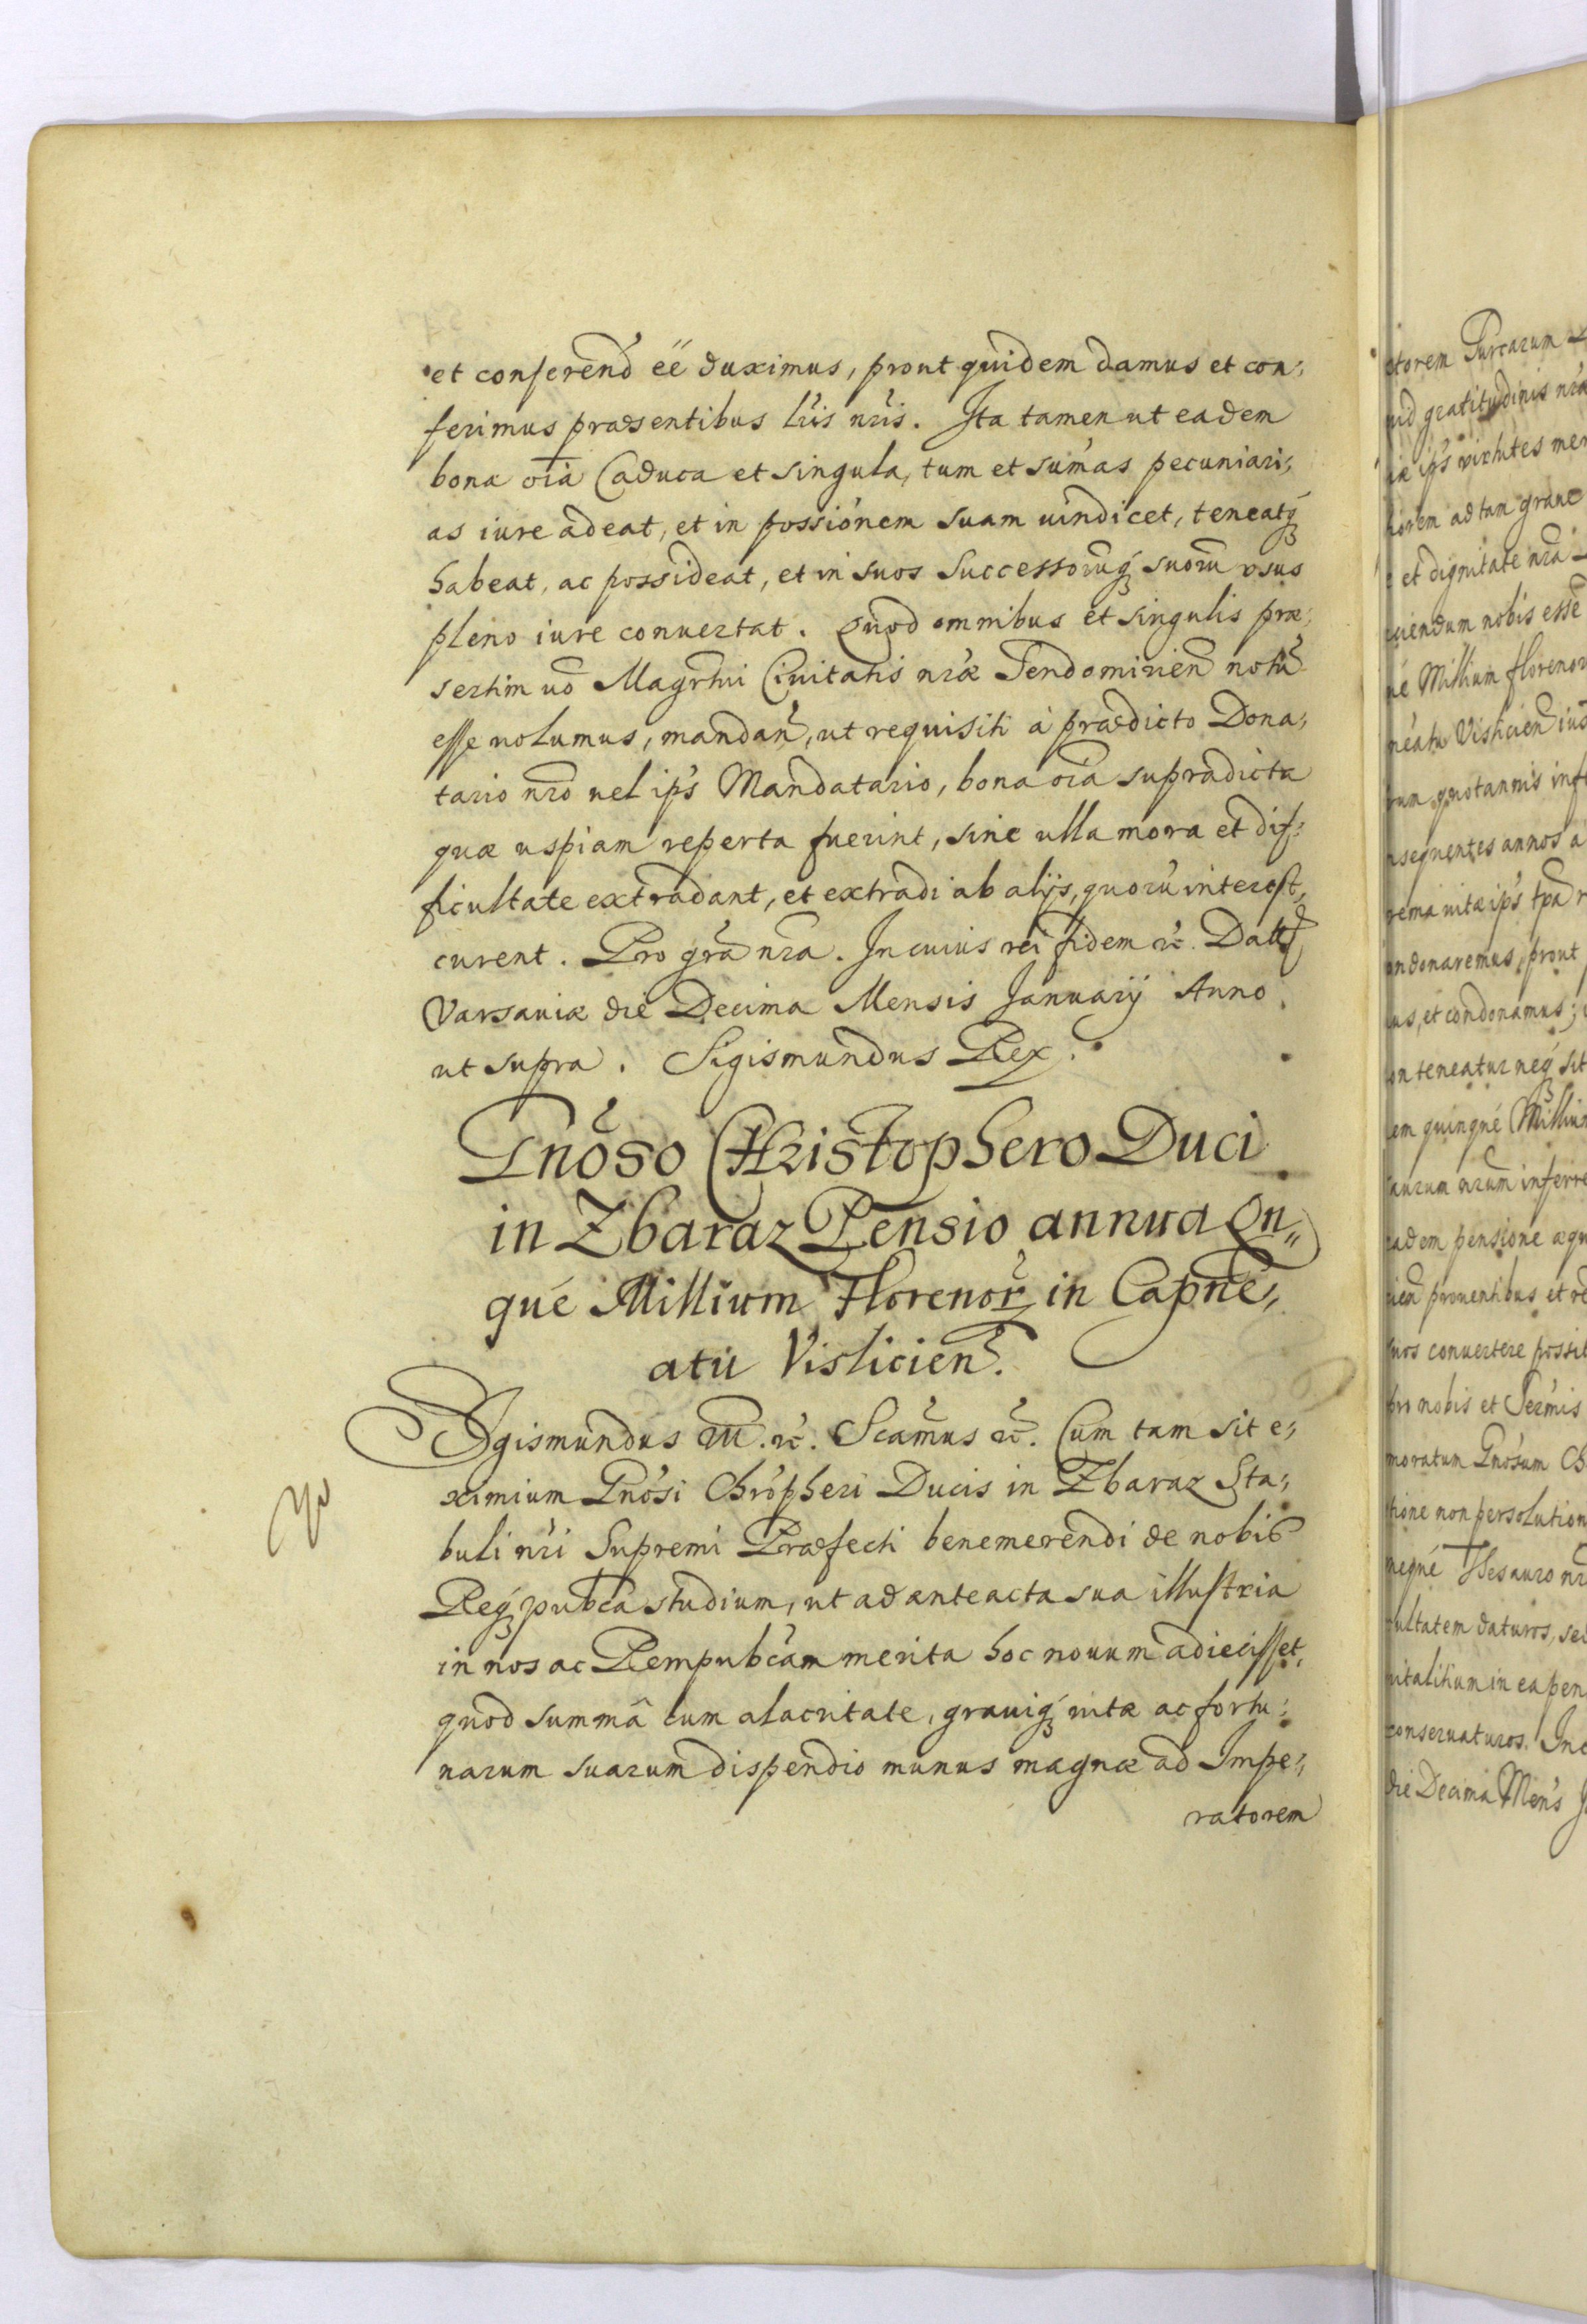 et conferend eē duximus, prout quidem damus et con,
ferimus præsentibus lris nris. Ita tamen ut eadem
bona oīa Caduca et singula, tum et sumas pecuniari,
as iure adeat, et in possionem suam uindicet, teneatq
habeat, ac possideat, et in suos Successorumq suorum vsus
pleno iure conuertat. Quod omnibus et singulis præ,
sertim uō Magrtui Ciuitatis nræ Sendomirien notū
esse uolumus, mandan, ut requisiti à prædicto Dona,
tario nro uel ips Mandatario, bona oīa supradicta
quæ uspiam reperta fuerint, sine ulla mora et dif,
ficultate extradant, et extradi ab alijs, quorū interest,
curent. Pro gra nra. In cuius rei fidem &c. Datt
Varsauiæ die Decima Mensis Januarij Anno
ut supra. Sigismundus Rex.
Gnoso Christophero Duci
in Zbaraz Pensio annua Qn,,
qué Millium Florenor in Capne,
atu Vislicien.
Sigismundus III. &c. Scamus &c. Cum tam sit e,
ximium Gnosi Chropheri Ducis in Zbaraz Sta,
buli nri Supremi Præfecti benemerendi de nobis
Reqpubca studium, ut ad anteacta sua illustria
in nos ac Rempubcam merita hoc nouum adiecisset,
quod summâ cum alacritate, grauiq uitæ ac fortu,
narum suarum dispendio munus magnæ ad Impe,
ratorem
storem Turcarum
gratitudinis nræ
ips virtutes
ad tam graue
et dignitate nra
nobis esse
Millium florenor
Vislicien
quotannis
nsequentes annos à
uitæ ips tpa
ondonaremus, prout
us, et condonamus;
on teneatur neq sit
em quinqué Millium
aurum nrum inferre
eadem pensione
prouentibus et
suos conuertere possit
pro nobis et Sermis
moratum Gnosum
tione non persolution
neque Thesauro
ultatem daturos,
uitalitium in ea
conseruaturos.
die Decima Mens